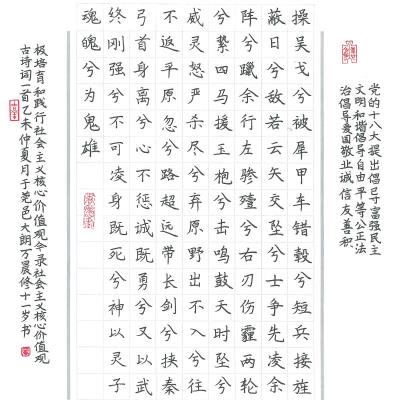 党的十八大提出倡导富强民主
文明和谐倡导自由平等公正法
治倡导爱国敬业诚信友善积
操吴戈兮被犀甲车错毂兮短兵接旌
蔽日兮敌若云矢交坠兮士争先凌余
阵兮躐余行左骖殪兮右刃伤霾两轮
兮絷四马援玉枹兮击鸣鼓天时坠兮
威灵怒严杀尽兮弃原野出不入兮往
不返平原忽兮路超远带长剑兮挟秦
弓首身离兮心不惩诚既勇兮又以武
终刚强兮不可凌身既死兮神以灵子
魂魄兮为鬼雄
极培育和践行社会主义核心价值观今录社会主义核心价值观
古诗词二首乙未仲夏月于莞邑大朗万晨修十一岁书